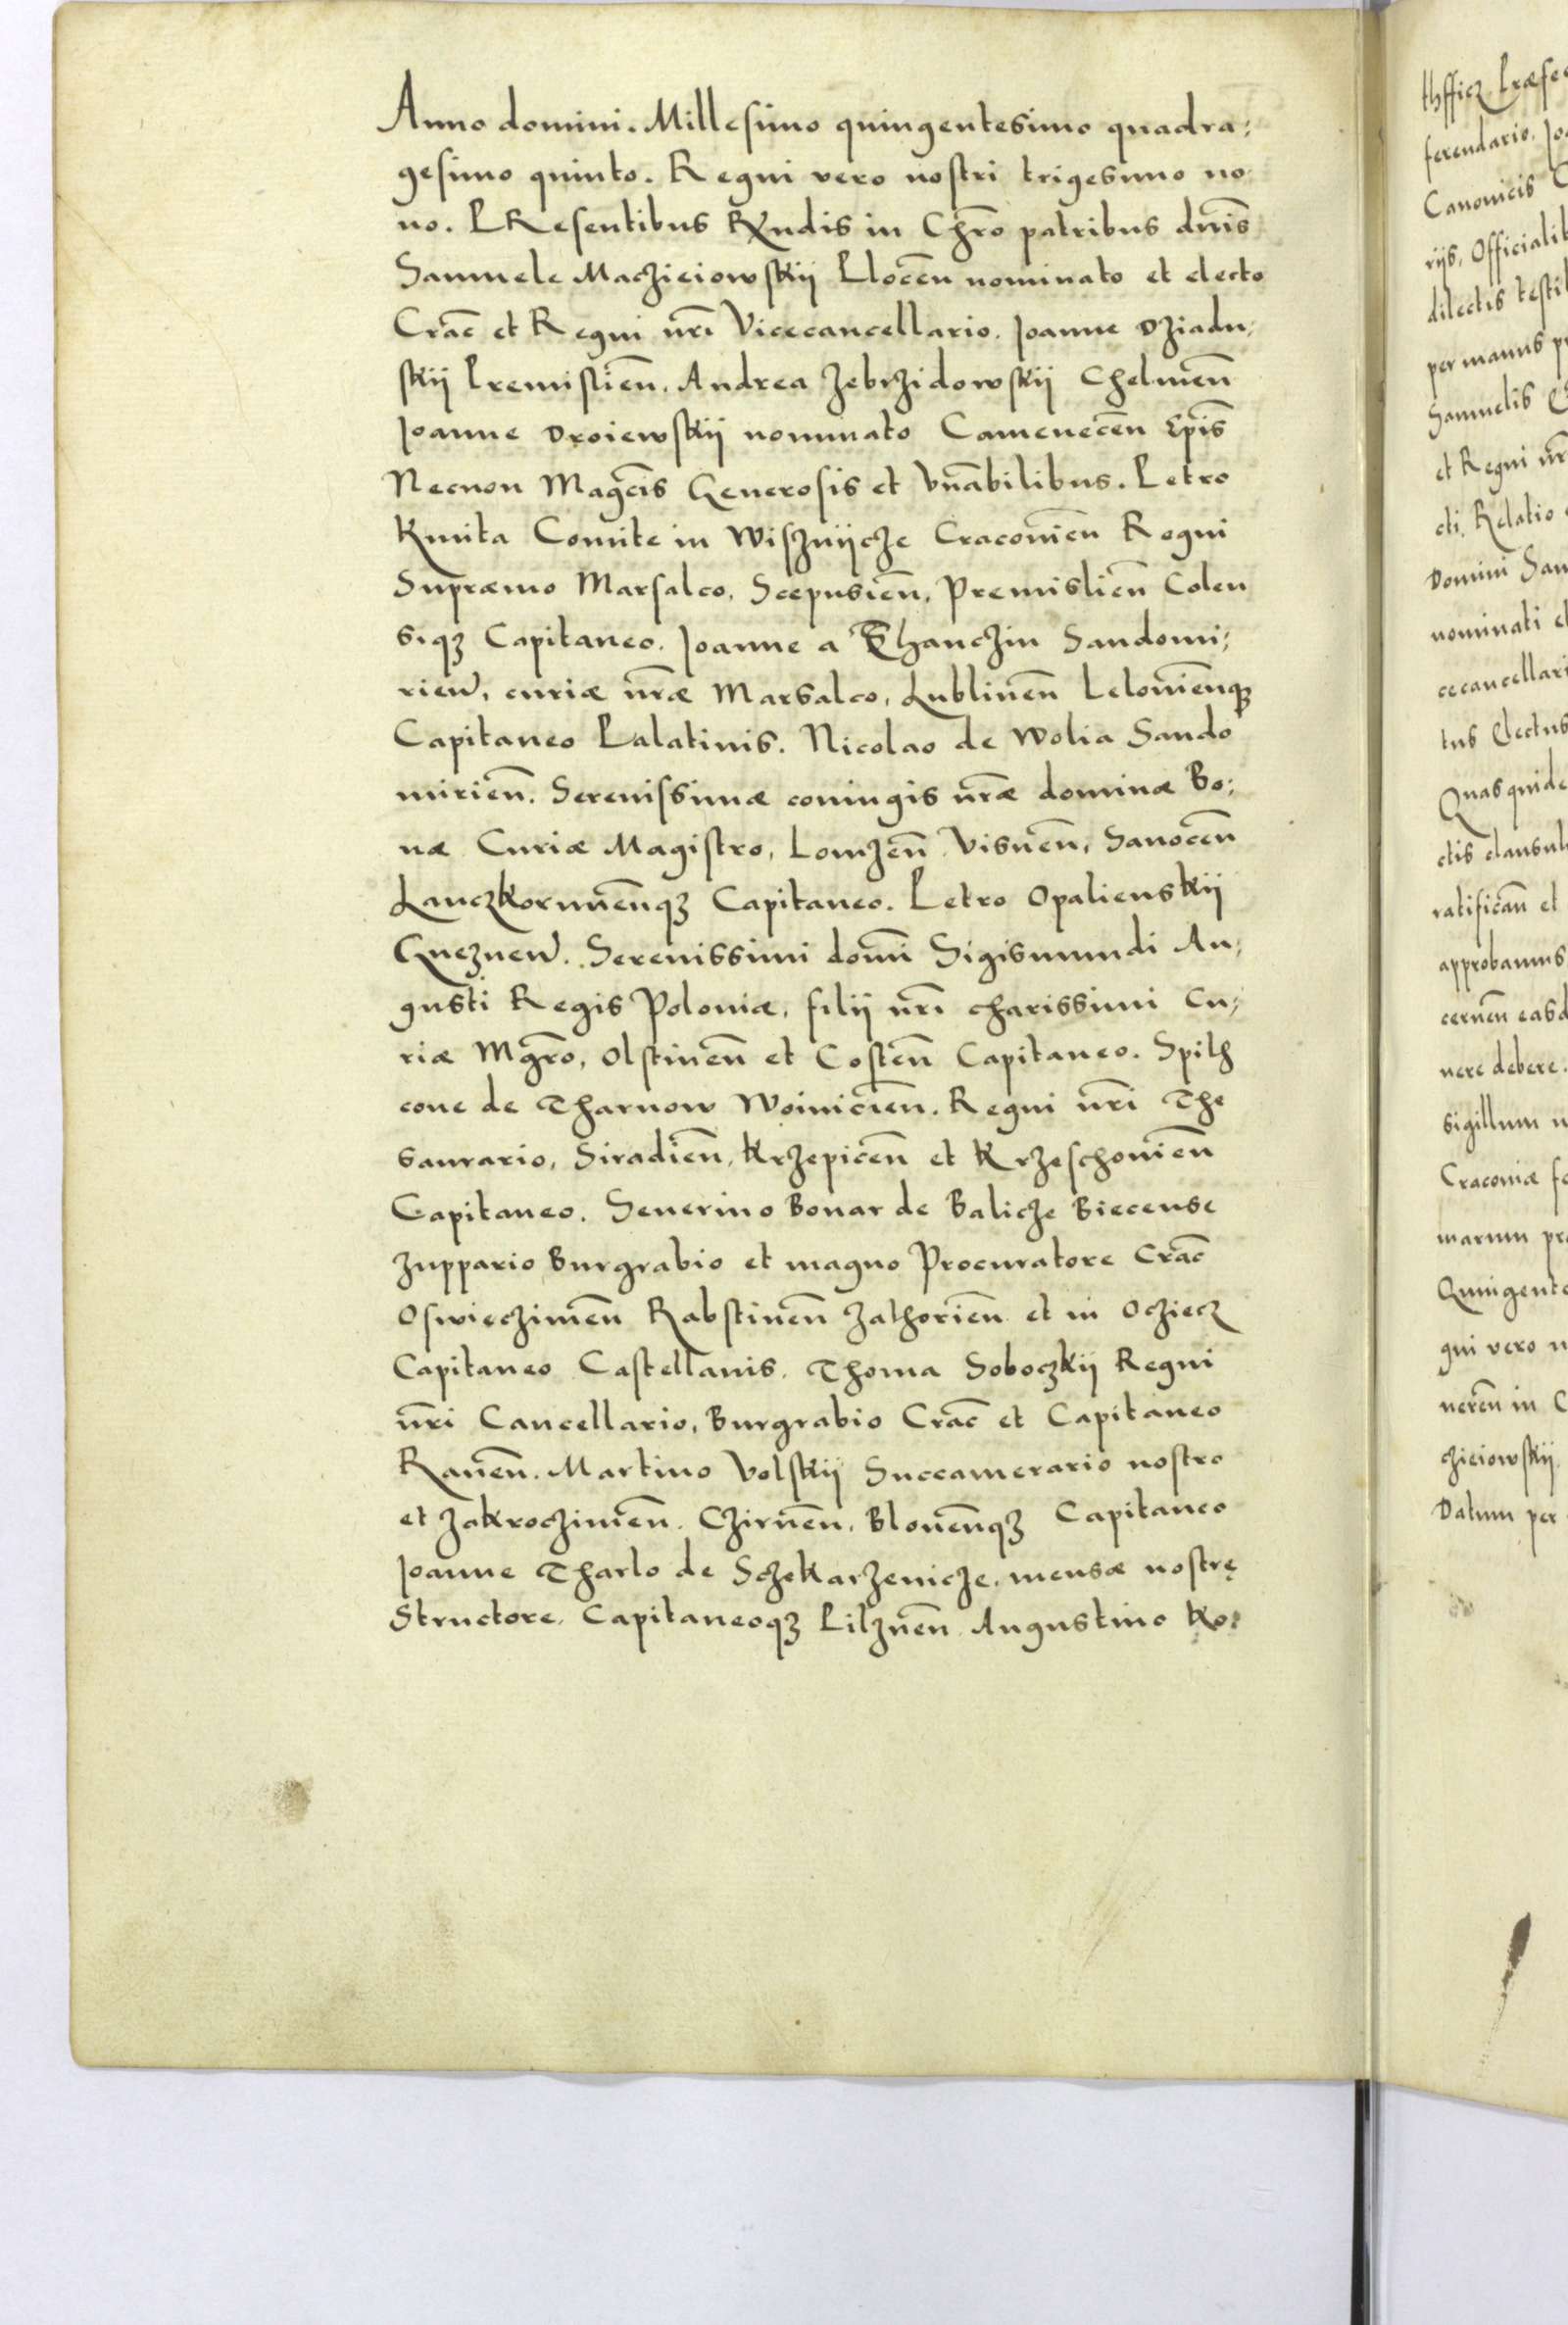 Anno domini. Millesimo quingentesimo quadra:
gesimo quinto. Regni vero nostri trigesimo no
no. PResentibus Rndis in Chro patribus dnis
Samuele Maczieiowskij Plocen nominato et electo
Crac et Regni nri Vicecancellario. Joanne Dziadu:
skij Premislien. Andrea Zebrzidowskij Chelmen
Joanne Droiewskij nominato Camenecen Epis
Necnon Magcis Generosis et Vnabilibus. Petro
Kmita Comite in Wisznijcze Cracovien Regni
Supræmo Marsalco, Scepusien, Premislien Colen
siqz Capitaneo. Joanne a Thanczin Sandomi:
rien, curiæ nræ Marsalco, Lublinen Lelovienqz
Capitaneo Palatinis. Nicolao de Wolia Sando
mirien. Serenissimæ coniugis nræ dominæ Bo:
næ Curiæ Magistro, Lomzen Visnen, Sanocen
Lanczkorunenqz Capitaneo. Petro Opalienskij
Gneznen. Serenissimi domi Sigismundi Au:
gusti Regis Poloniæ, filij nri charissimi Cu:
riæ Mgro, Olstinen et Costen Capitaneo. Spith
cone de Tharnow Woinicien. Regni nri The
saurario, Siradien, Krzepicen et Krzeschovien
Capitaneo. Severino Bonar de Balicze Biecense
Zuppario Burgrabio et magno Procuratore Crac
Oswieczimen Rabstinen Zathorien et in Ocziecz
Capitaneo Castellanis. Thoma Soboczkij Regni
nri Cancellario, Burgrabio Crac et Capitaneo
Raven. Martino Volskij Succamerario nostro
et Zakroczimen. Czirnen, Blonenqz Capitaneo
Joanne Tharlo de Sczekarzenicze, mensæ nostrę
Structore. Capitaneoqz Pilznen Augustino Ko:
thfficz Præfe
ferendario. Jo
Canonicis C
rijs, Officialib
dilectis testib
per manus pr
Samuelis E
et Regni nr
cti. Relatio
Domini Sam
nominati el
cecancellari
tus Electus
Quas quide
ctis clausul
ratifican et
approbamus
cernen easd
nere debere.
sigillum n
Cracoviæ fe
marum pro
Quingente
gni vero n
neren in C
czieiowskij
Datum per